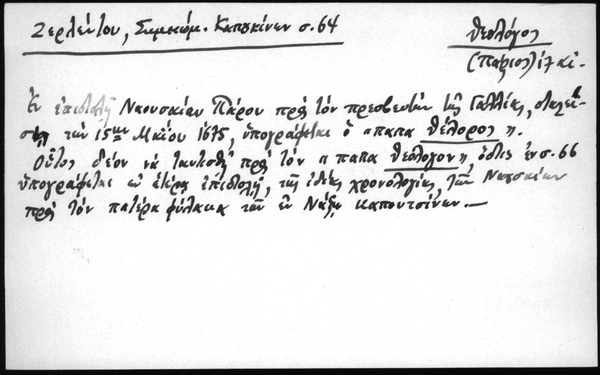 Ζερλέντου, Σημειώμ. Καπουκίνων σ. 64
Θεολόγος
(Πάριος) 17 αἰ.
Ἐν ἐπιστολῇ Ναουσαίων Πάρου πρὸς τὸν πρεσβευτὴν τῆς Γαλλίας, σταλεί-
σῃ τὴν 15ην Μαΐου 1675, ὑπογράφεται ὁ "παπα Θέλορος".
Οὗτος δέον νὰ ταυτισθῇ πρὸς τὸν "παπα Θεολόγον", ὅστις ἐν σ. 66
ὑπογράφεται ἐν ἑτέρᾳ ἐπιστολῇ, τῆς ἰδίας χρονολογίας, τῶν Ναουσαίων
πρὸς τὸν πατέρα φύλακα τῶν ἐν Νάξῳ καπουτσίνων.—